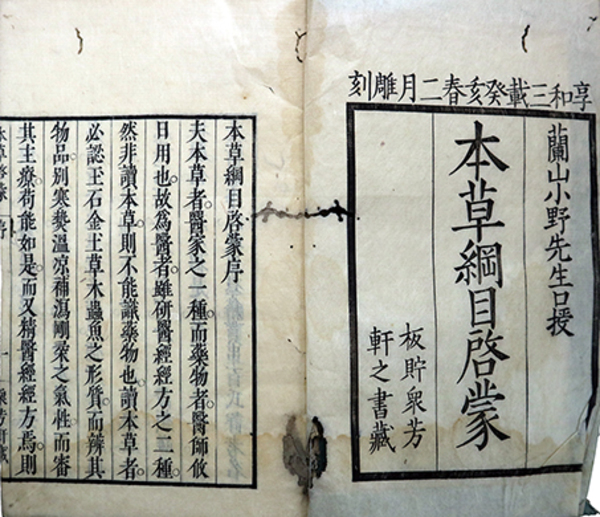 享和三載癸亥春二月雕刻
蘭山小野先生口授
本草綱目啓蒙
板貯衆芳
軒之書藏
本草綱目啓蒙序
夫本草者。醫家之一種。而藥物者。醫師攸
日用也。故爲醫者。雖研醫經經方之二種。
然非讀本草。則不能識藥物也。讀本草者。
必認玉石金土草木蟲魚之形質。而辨其
物品。別寒熱溫凉補瀉剛柔之氣性。而審
其主療。苟能如是。而又精醫經經方焉。則